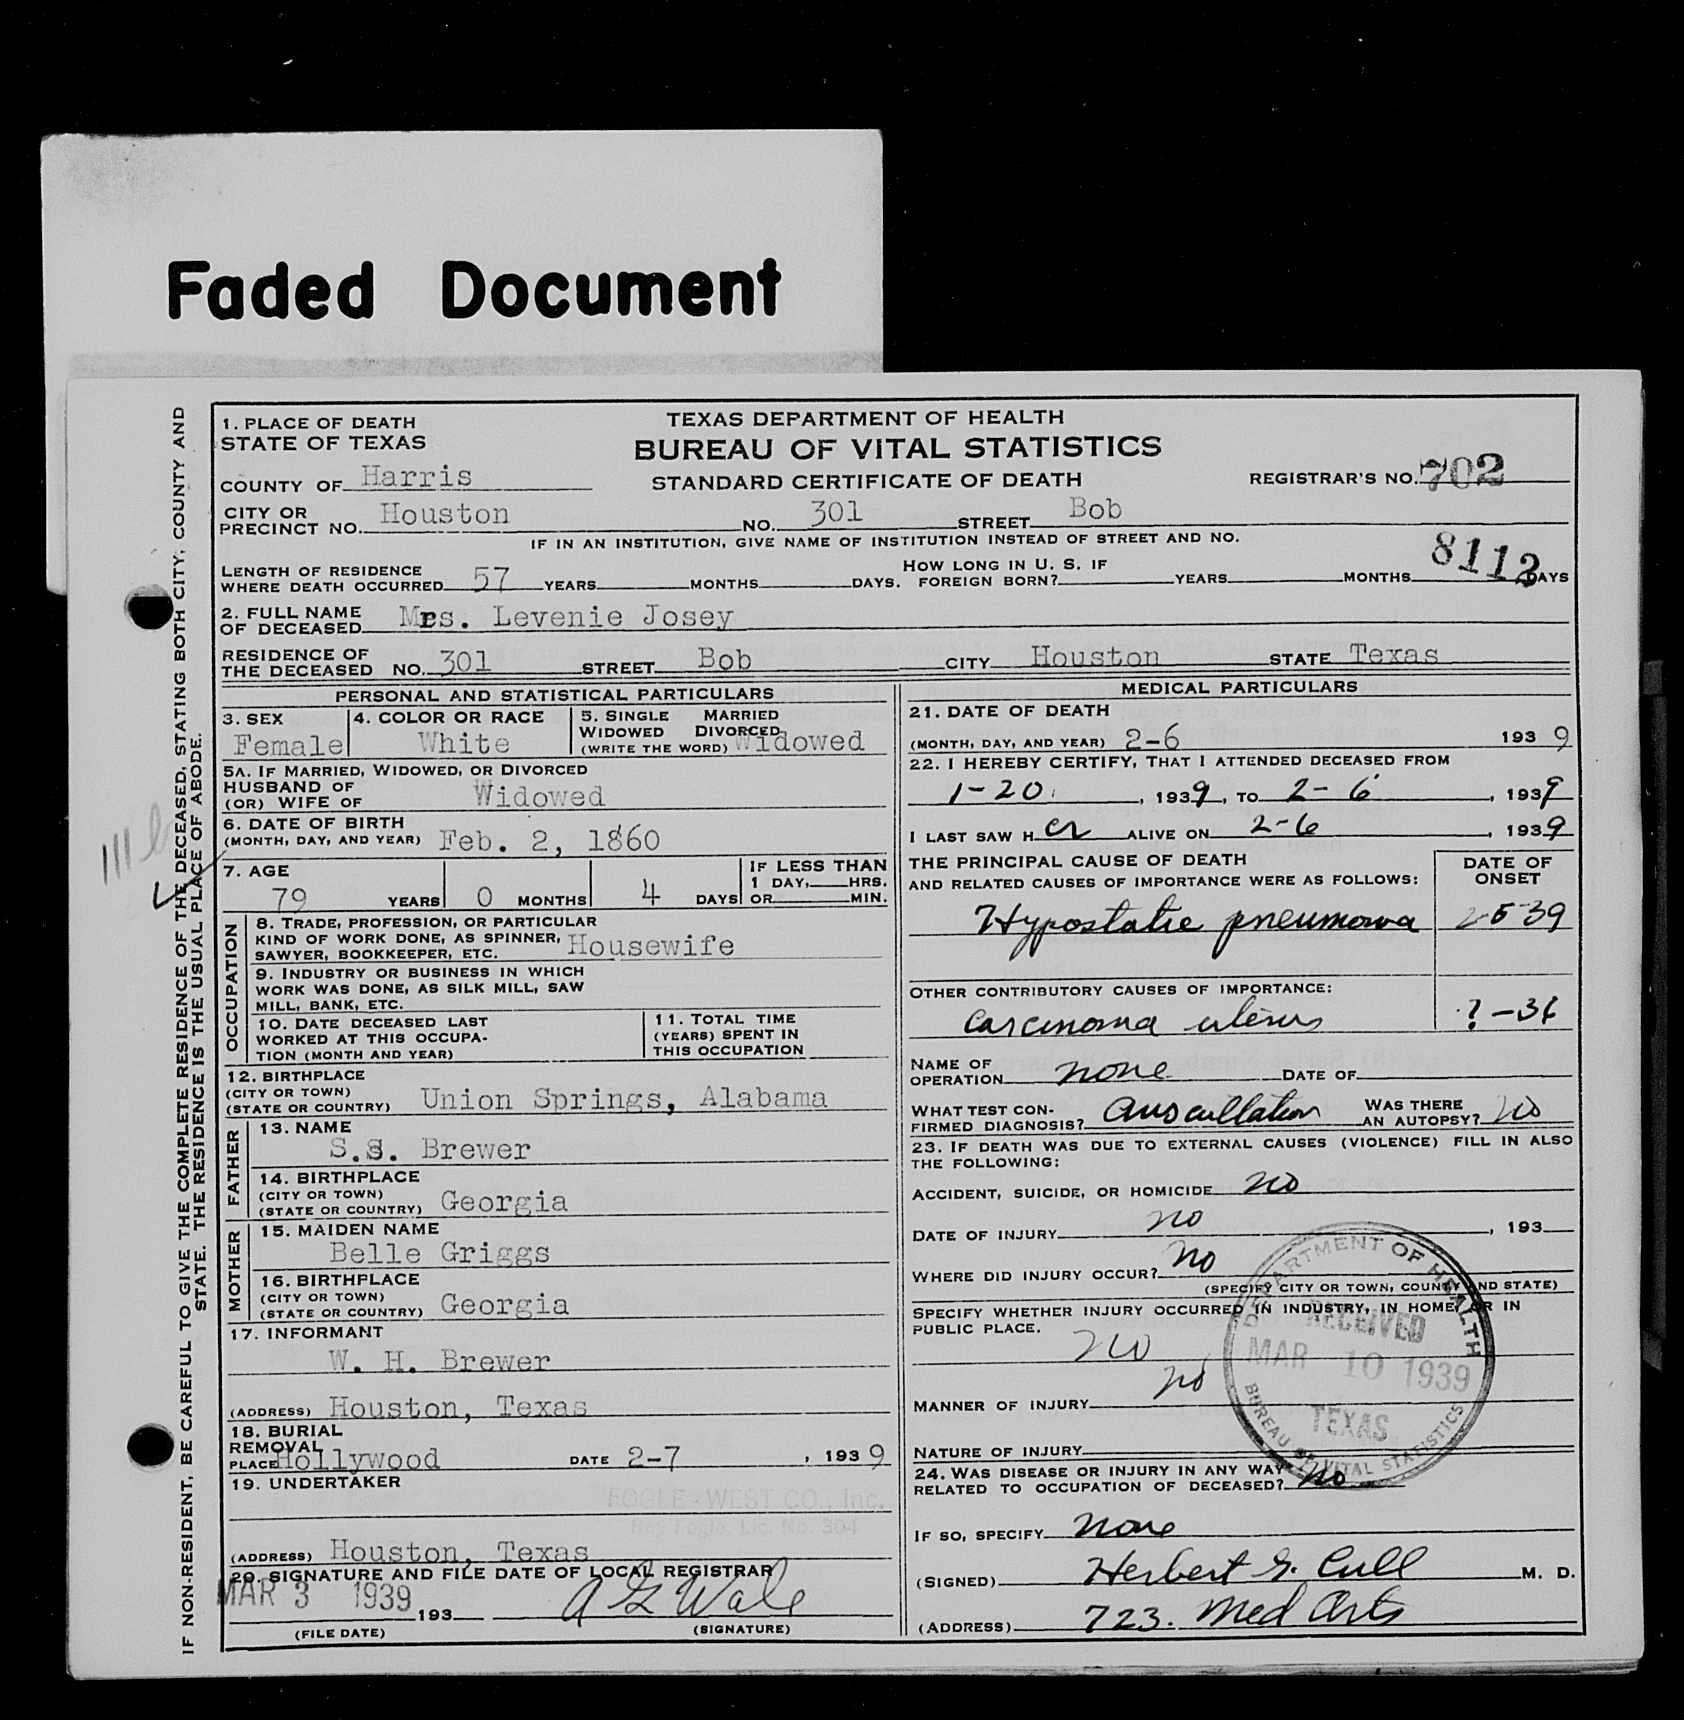 Faded Document
1. PLACE OF DEATH
STATE OF TEXAS
COUNTY OF Harris
CITY OR
PRECINCT NO. Houston NO. 301 STREET Bob
TEXAS DEPARTMENT OF HEALTH
BUREAU OF VITAL STATISTICS
STANDARD CERTIFICATE OF DEATH
REGISTRAR'S NO. 702
IF IN AN INSTITUTION, GIVE NAME OF INSTITUTION INSTEAD OF STREET AND NO.
8112
LENGTH OF RESIDENCE
WHERE DEATH OCCURRED 57 YEARS MONTHS DAYS.
HOW LONG IN U. S. IF
FOREIGN BORN? YEARS MONTHS DAYS
2. FULL NAME
OF DECEASED Mrs. Levenie Josey
RESIDENCE OF
THE DECEASED NO. 301 STREET Bob CITY Houston STATE Texas
PERSONAL AND STATISTICAL PARTICULARS
3. SEX
Female
4. COLOR OR RACE
White
5. SINGLE MARRIED
WIDOWED DIVORCED
(WRITE THE WORD) Widowed
5A. IF MARRIED, WIDOWED, OR DIVORCED
HUSBAND OF
(OR) WIFE OF Widowed
6. DATE OF BIRTH
(MONTH, DAY, AND YEAR) Feb. 2, 1860
7. AGE
79 YEARS 0 MONTHS 4 DAYS
IF LESS THAN
1 DAY, HRS.
OR MIN.
OCCUPATION
8. TRADE, PROFESSION, OR PARTICULAR
KIND OF WORK DONE, AS SPINNER,
SAWYER, BOOKKEEPER, ETC. Housewife
9. INDUSTRY OR BUSINESS IN WHICH
WORK WAS DONE, AS SILK MILL, SAW
MILL, BANK, ETC.
10. DATE DECEASED LAST
WORKED AT THIS OCCUPA-
TION (MONTH AND YEAR)
11. TOTAL TIME
(YEARS) SPENT IN
THIS OCCUPATION
12. BIRTHPLACE
(CITY OR TOWN)
(STATE OR COUNTRY) Union Springs, Alabama
FATHER
13. NAME
S.S. Brewer
14. BIRTHPLACE
(CITY OR TOWN)
(STATE OR COUNTRY) Georgia
MOTHER
15. MAIDEN NAME
Belle Griggs
16. BIRTHPLACE
(CITY OR TOWN)
(STATE OR COUNTRY) Georgia
17. INFORMANT
W. H. Brewer
(ADDRESS) Houston, Texas
18. BURIAL
REMOVAL
PLACE Hollywood DATE 2-7, 1939
19. UNDERTAKER
FOGLE-WEST CO., Inc.
Roy Fogle, Lic. No. 304
(ADDRESS) Houston, Texas
20. SIGNATURE AND FILE DATE OF LOCAL REGISTRAR
MAR 3 1939 193 A G Wale
(FILE DATE) (SIGNATURE)
MEDICAL PARTICULARS
21. DATE OF DEATH
(MONTH, DAY, AND YEAR) 2-6 1939
22. I HEREBY CERTIFY, THAT I ATTENDED DECEASED FROM
1-20, 1939, TO 2-6, 1939
I LAST SAW HER ALIVE ON 2-6, 1939
THE PRINCIPAL CAUSE OF DEATH
AND RELATED CAUSES OF IMPORTANCE WERE AS FOLLOWS:
DATE OF
ONSET
Hypostatic pneumonia 2-5-39
OTHER CONTRIBUTORY CAUSES OF IMPORTANCE:
Carcinoma uterus ?-36
NAME OF
OPERATION none DATE OF
WHAT TEST CON-
FIRMED DIAGNOSIS? Auscultation
WAS THERE
AN AUTOPSY? no
23. IF DEATH WAS DUE TO EXTERNAL CAUSES (VIOLENCE) FILL IN ALSO
THE FOLLOWING:
ACCIDENT, SUICIDE, OR HOMICIDE no
DATE OF INJURY no, 193
WHERE DID INJURY OCCUR? no
(SPECIFY CITY OR TOWN, COUNTY AND STATE)
SPECIFY WHETHER INJURY OCCURRED IN INDUSTRY, IN HOME, OR IN
PUBLIC PLACE.
no
MANNER OF INJURY no
NATURE OF INJURY
24. WAS DISEASE OR INJURY IN ANY WAY
RELATED TO OCCUPATION OF DECEASED? no
IF SO, SPECIFY none
(SIGNED) Herbert G. Cull M. D.
(ADDRESS) 723. Med Arts
DEPARTMENT OF HEALTH
RECEIVED
MAR 10 1939
TEXAS
BUREAU OF VITAL STATISTICS
IF NON-RESIDENT, BE CAREFUL TO GIVE THE COMPLETE RESIDENCE OF THE DECEASED, STATING BOTH CITY, COUNTY AND
STATE. THE RESIDENCE IS THE USUAL PLACE OF ABODE.